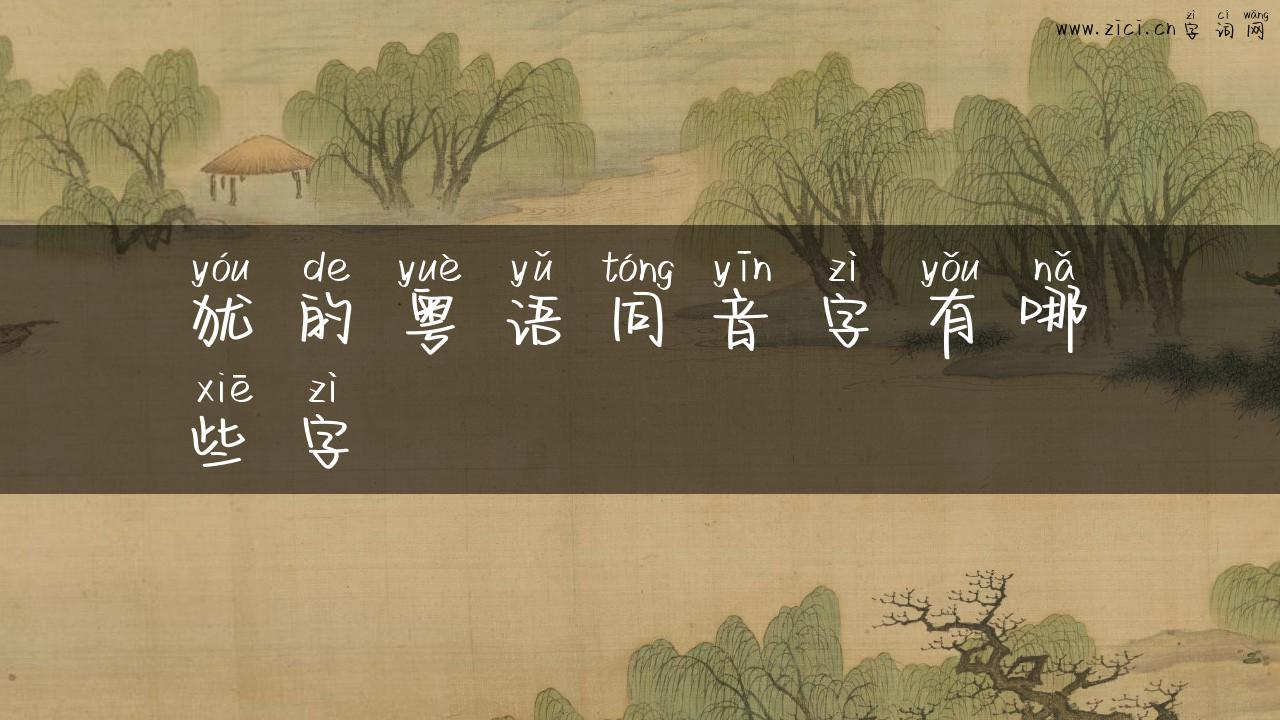 zì cí wǎng
www.zici.cn 字 词 网
yóu de yuè yǔ tóng yīn zì yǒu nǎ
犹 的 粤 语 同 音 字 有 哪
xiē zì
些 字